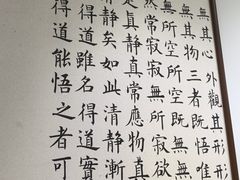 無其心外觀其形形
無其物三者既悟唯
無所空所空既無無
然常寂寂無所寂欲
真靜真常應物真
清靜矣如此清靜漸
得道雖名得道實
得道能悟之者可